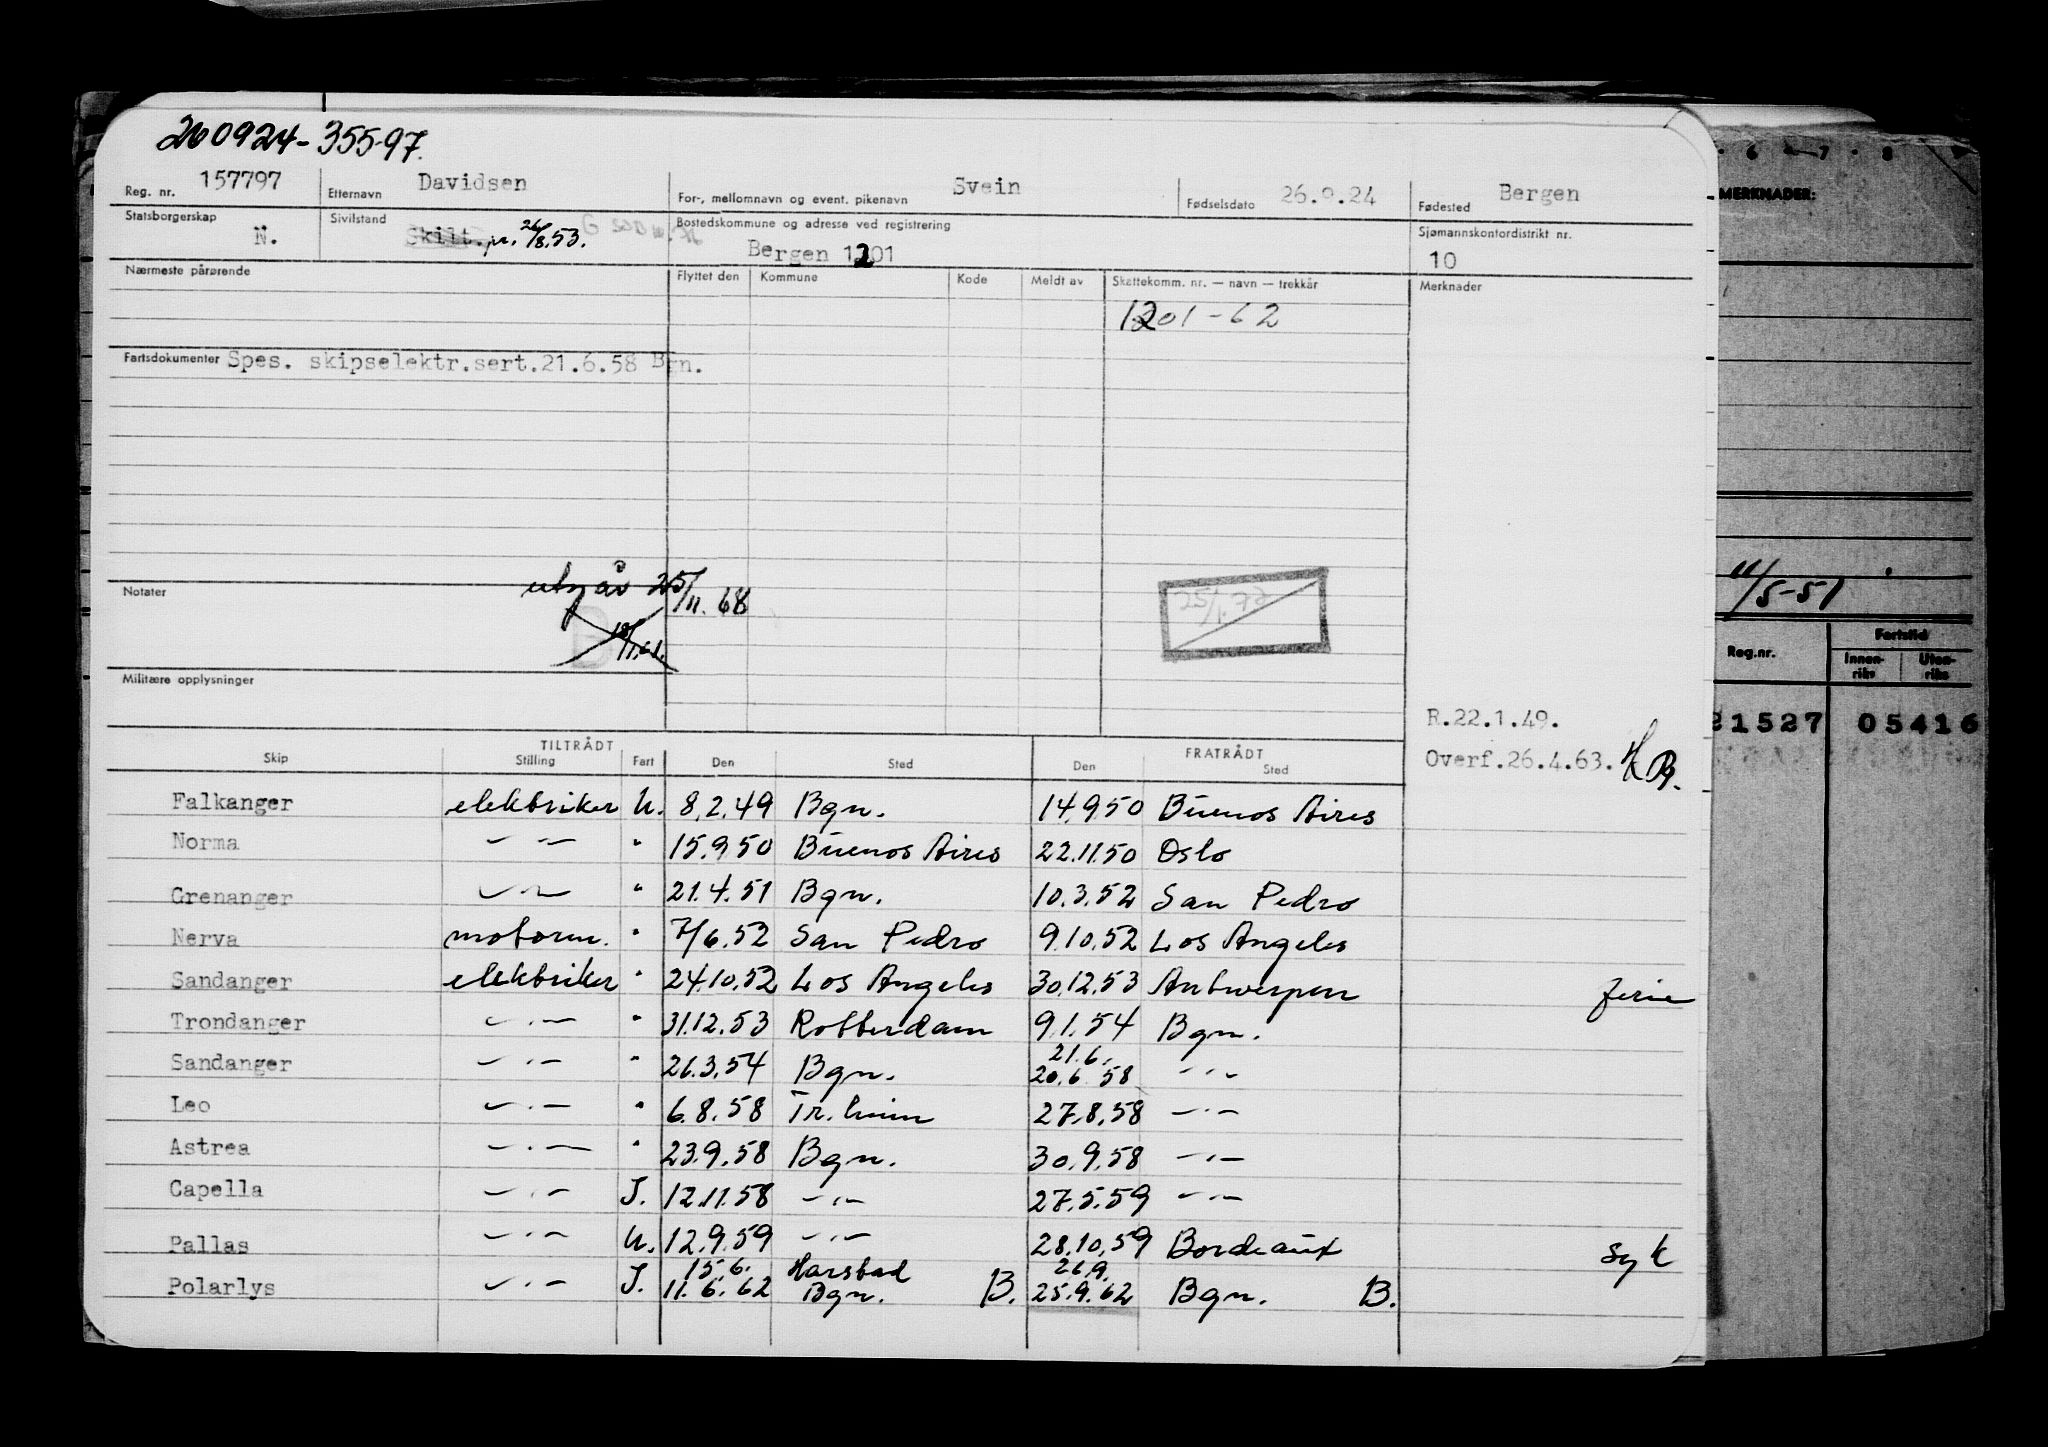 260924-35597.
Reg. nr. 157797 Etternavn Davidsen For-, mellomnavn og event. pikenavn Svein Fødselsdato 26.9.24 Fødested Bergen
Statsborgerskap N. Sivilstand Skilt. pr. 26/8.53. Bostedskommune og adresse ved registrering Bergen 1201 Sjømannskontordistrikt nr. 10
Nærmeste pårørende Flyttet den Kommune Kode Meldt av Skattekomm. nr. — navn — trekkår Merknader
1201-62
Fartsdokumenter Spes. skipselektr.sert.21.6.58 Bgn.
Notater utgår 25/11.68
18/1.61.
25/1.72
Militære opplysninger
R.22.1.49.
Overf.26.4.63.
TILTRÅDT FRATRÅDT
Skip Stilling Fart Den Sted Den Sted
Falkanger elektriker U. 8.2.49 Bgn. 14.9.50 Buenos Aires
Norma -"- " 15.9.50 Buenos Aires 22.11.50 Oslo
Grenanger -"- " 21.4.51 Bgn. 10.3.52 San Pedro
Nerva motorm. " 7/6.52 San Pedro 9.10.52 Los Angeles
Sandanger elektriker " 24.10.52 Los Angeles 30.12.53 Antwerpen ferie
Trondanger -"- " 31.12.53 Rotterdam 9.1.54 Bgn.
21.6.
Sandanger -"- " 26.3.54 Bgn. 20.6.58 -"-
Leo -"- " 6.8.58 Tr.heim 27.8.58 -"-
Astrea -"- " 23.9.58 Bgn. 30.9.58 -"-
Capella -"- I. 12.11.58 -"- 27.5.59 -"-
Pallas -"- U. 12.9.59 -"- 28.10.59 Bordeaux syk
15.6. Harstad 26.9.
Polarlys -"- I. 11.6.62 Bgn. B. 25.9.62 Bgn. B.
6 7 8
MERKNADER:
11/5-51
Reg.nr. Fartstid
Innen-riks Uten-riks
21527 05416